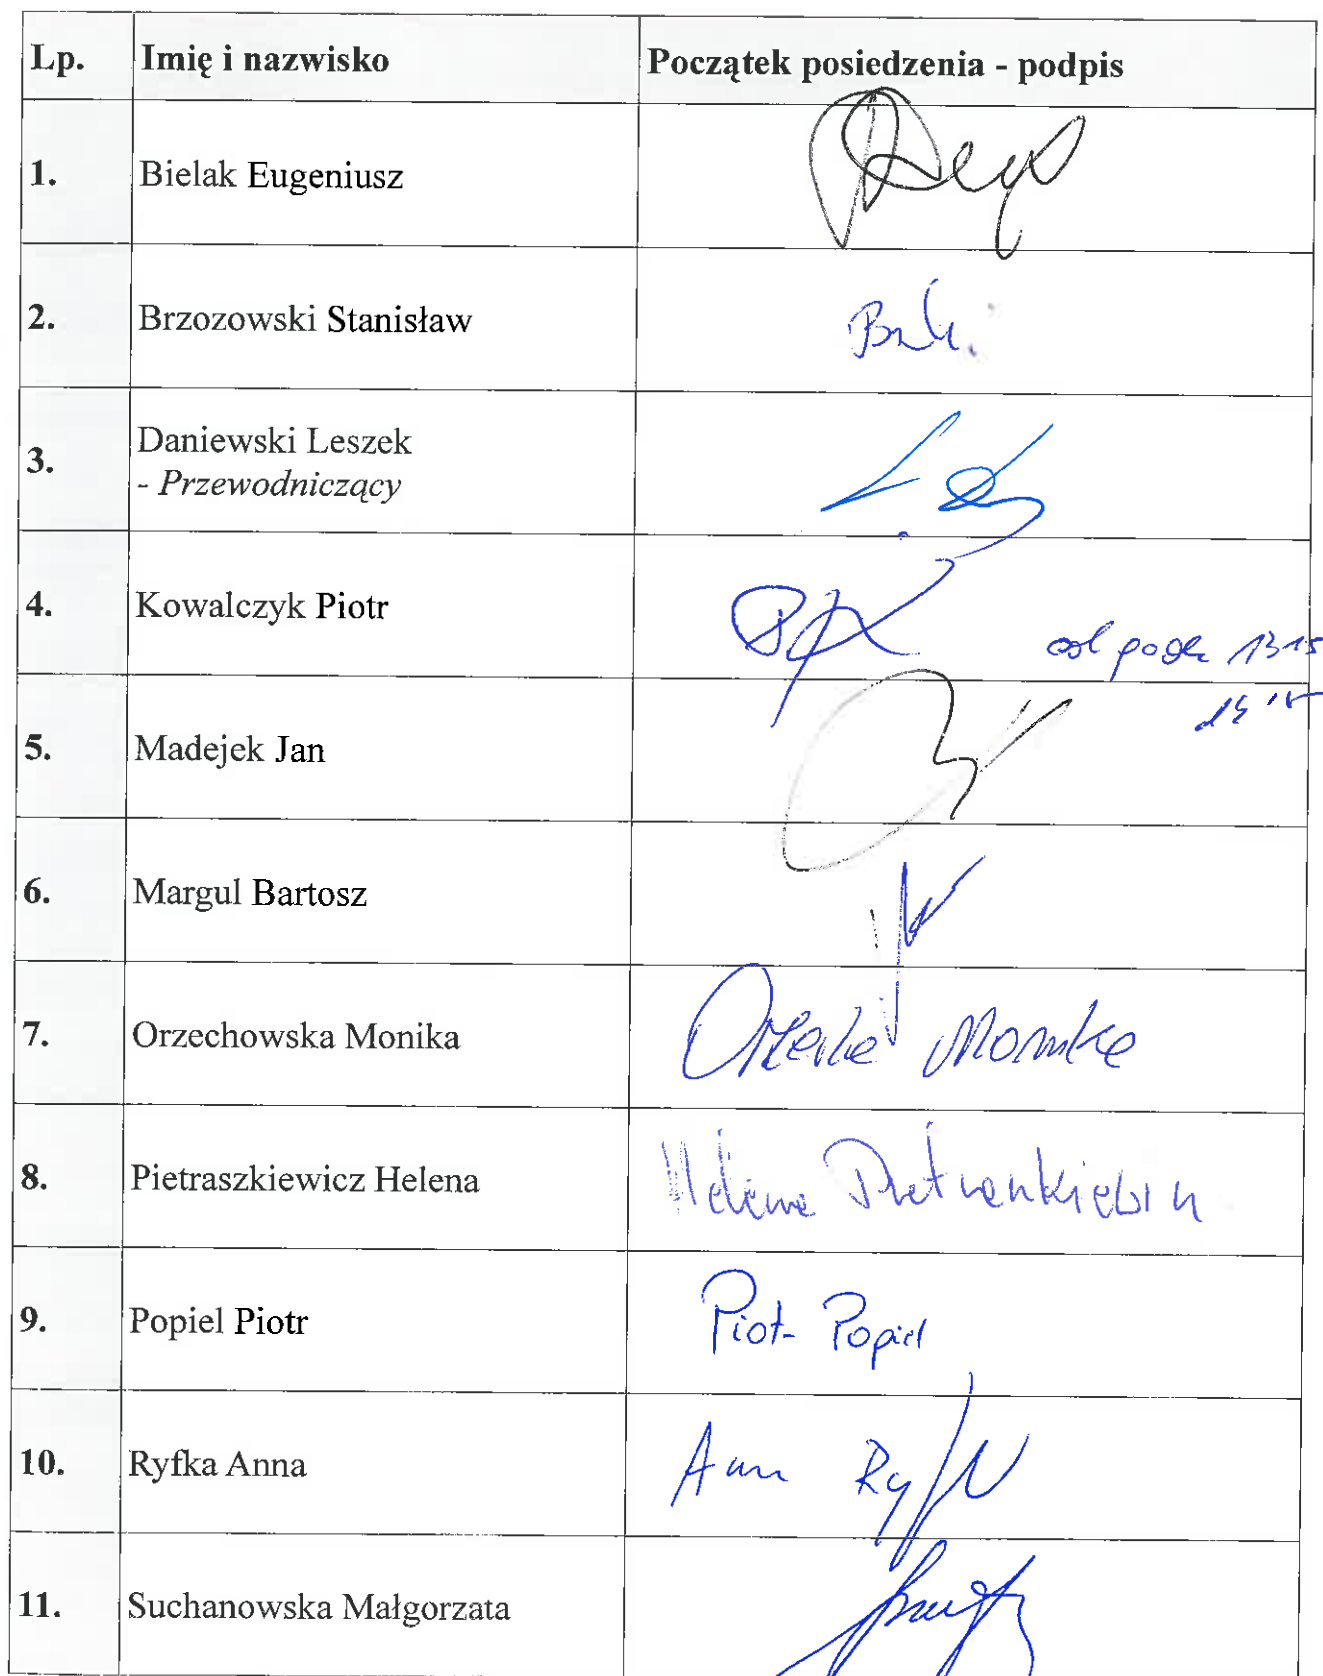 Lp. Imię i nazwisko Początek posiedzenia - podpis
1. Bielak Eugeniusz
2. Brzozowski Stanisław
3. Daniewski Leszek
- Przewodniczący
4. Kowalczyk Piotr
od godz 13 15
5. Madejek Jan
6. Margul Bartosz
7. Orzechowska Monika Monika
8. Pietraszkiewicz Helena Helena Pietraszkiewicz
9. Popiel Piotr Piotr Popiel
10. Ryfka Anna Anna Ryfka
11. Suchanowska Małgorzata